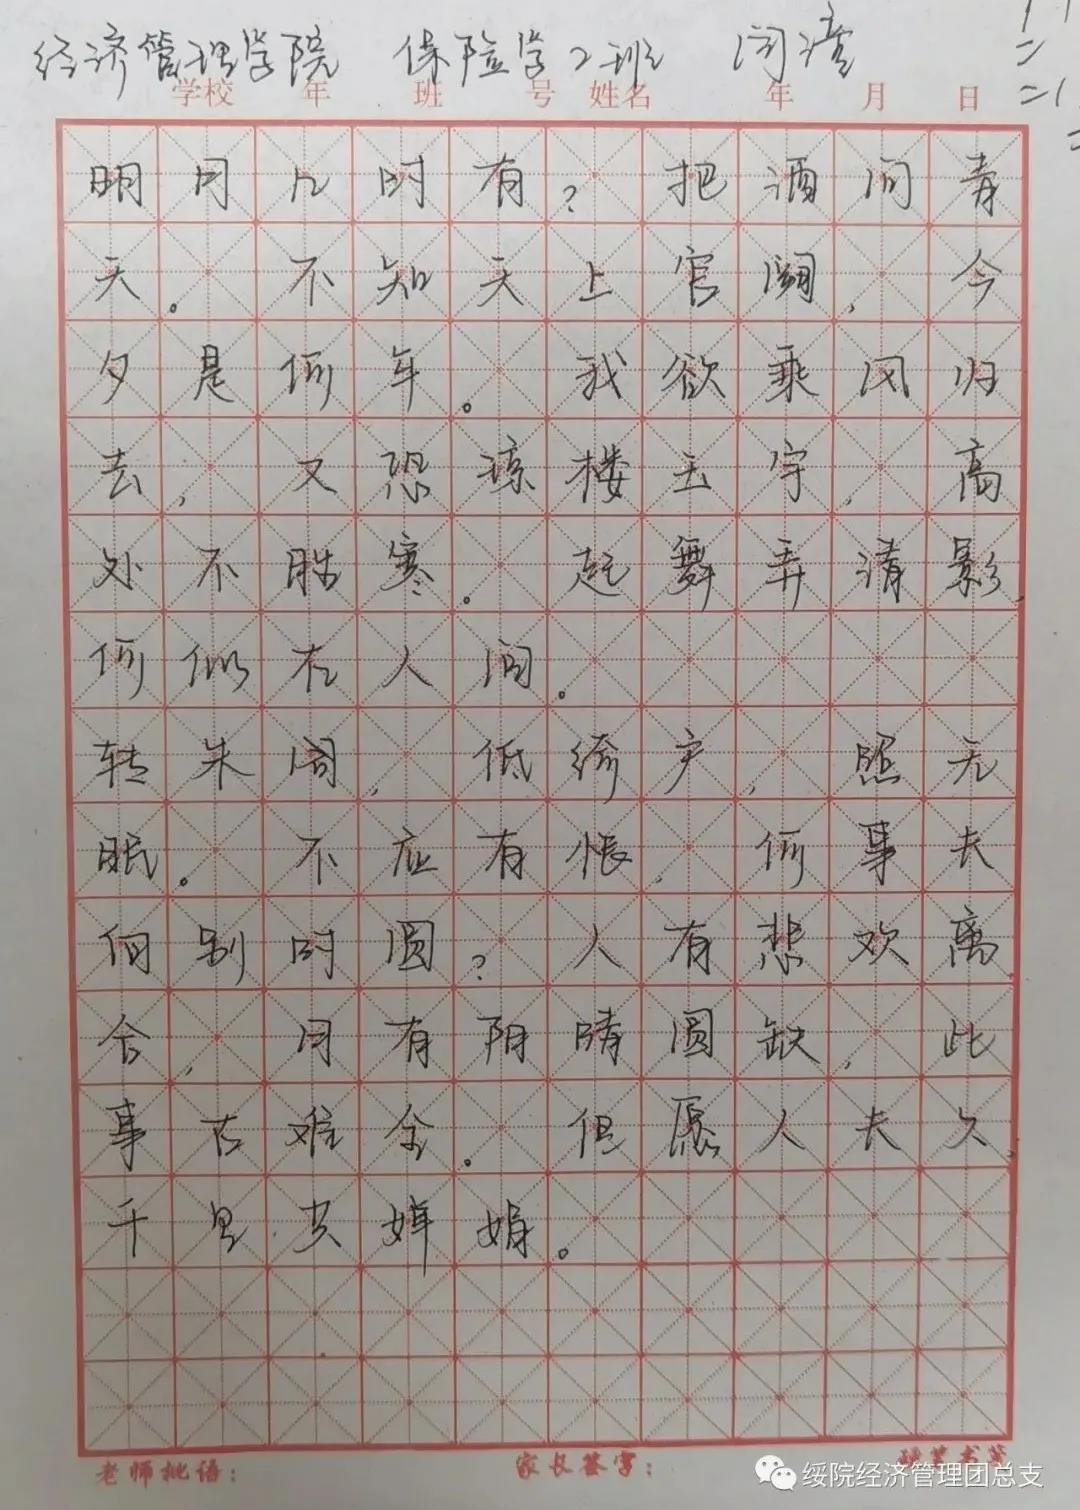 经济管理学院 保险学2班 闫滢
学校 年 班 号 姓名 年 月 日
明月几时有？把酒问青
天。不知天上宫阙，今
夕是何年。我欲乘风归
去，又恐琼楼玉宇，高
处不胜寒。起舞弄清影，
何似在人间。
转朱阁，低绮户，照无
眠。不应有恨，何事长
向别时圆？人有悲欢离
合，月有阴晴圆缺，此
事古难全。但愿人长久，
千里共婵娟。
老师批语： 家长签字：
绥院经济管理团总支